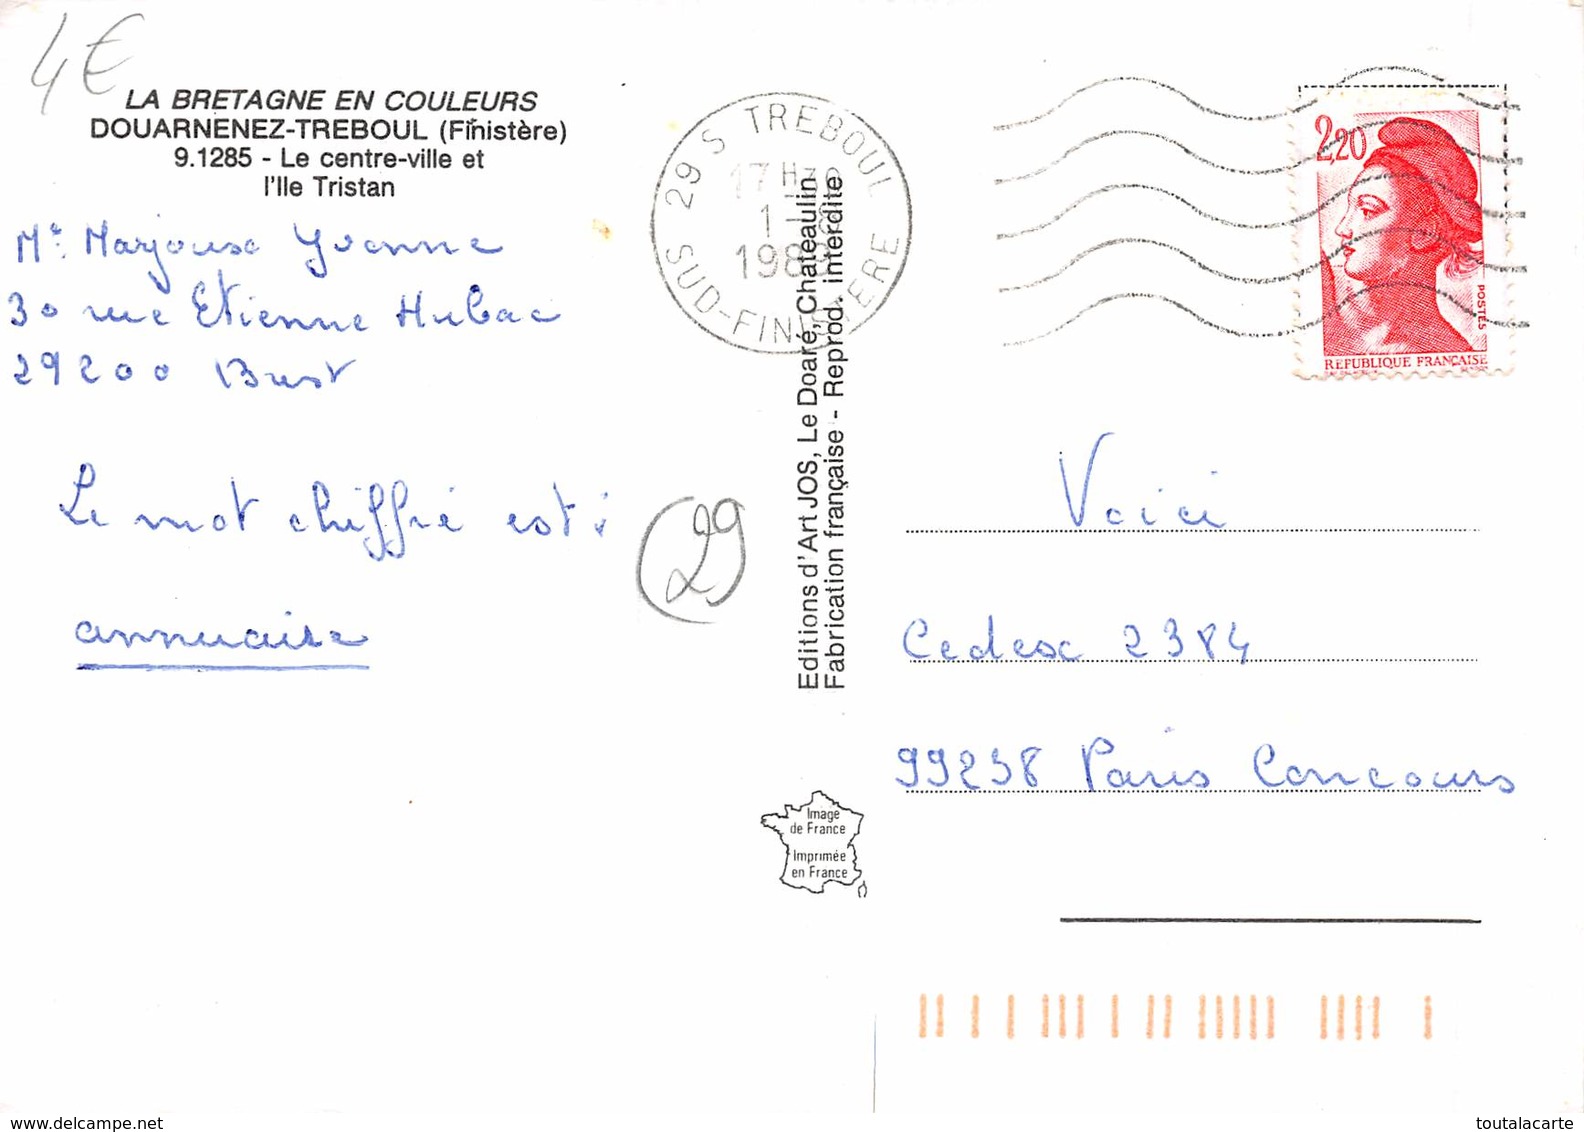 4€
LA BRETAGNE EN COULEURS
DOUARNENEZ-TREBOUL (Finistère)
9.1285 - Le centre-ville et
l'Ile Tristan
Me Marjouse Yvonne
30 rue Etienne Hubac
29200 Brest
Le mot chiffré est :
annuaire
(29
29 S TREBOUL
17 H
1
198
SUD-FINISTERE
Editions d'Art JOS, Le Doaré, Chateaulin
Fabrication française - Reprod. interdite
2,20
POSTES
REPUBLIQUE FRANÇAISE
Voici
Cedex 2384
99238 Paris Concours
Image
de France
Imprimée
en France
delcampe.net
toutalacarte